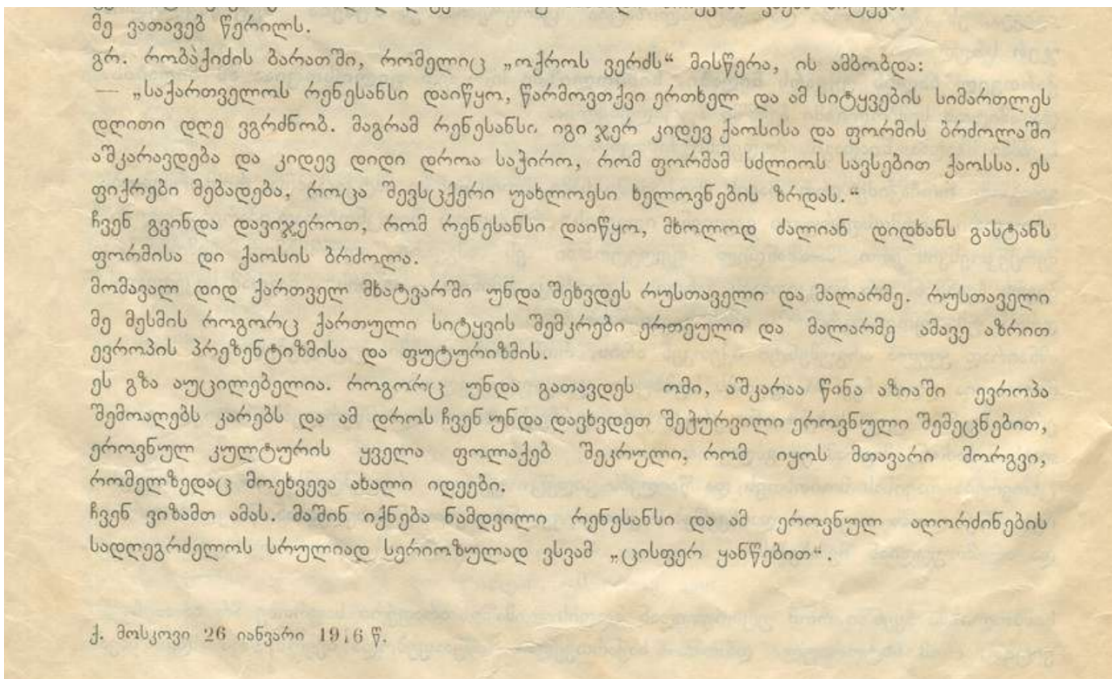 მე ვათავებ წერილს.
გრ. რობაქიძის ბარათში, რომელიც „ოქროს ვერძს“ მისწერა, ის ამბობდა:
— „საქართველოს რენესანსი დაიწყო, წარმოვთქვი ერთხელ და ამ სიტყვების სიმართლეს
დღითი დღე ვგრძნობ. მაგრამ რენესანსი იგი ჯერ კიდევ ქაოსისა და ფორმის ბრძოლაში
აშკარავდება და კიდევ დიდი დროა საჭირო, რომ ფორმამ სძლიოს სავსებით ქაოსსა. ეს
ფიქრები მებადება, როცა შევსცქერი უახლოესი ხელოვნების ზრდას.“
ჩვენ გვინდა დავიჯეროთ, რომ რენესანსი დაიწყო, მხოლოდ ძალიან დიდხანს გასტანს
ფორმისა დი ქაოსის ბრძოლა.
მომავალ დიდ ქართველ მხატვარში უნდა შეხვდეს რუსთაველი და მალარმე. რუსთაველი
მე მესმის როგორც ქართული სიტყვის შემკრები ერთეული და მალარმე ამავე აზრით
ევროპის პრეზენტიზმისა და ფუტურიზმის.
ეს გზა აუცილებელია. როგორც უნდა გათავდეს ომი, აშკარაა წინა აზიაში ევროპა
შემოაღებს კარებს და ამ დროს ჩვენ უნდა დავხვდეთ შეჭურვილი ეროვნული შემეცნებით,
ეროვნულ კულტურის ყველა ფოლაქებ შეკრული, რომ იყოს მთავარი მორგვი,
რომელზედაც მოეხვევა ახალი იდეები.
ჩვენ ვიზამთ ამას. მაშინ იქნება ნამდვილი რენესანსი და ამ ეროვნულ აღორძინების
სადღეგრძელოს სრულიად სერიოზულად ვსვამ „ცისფერ ყანწებით“.
ქ. მოსკოვი 26 იანვარი 1916 წ.